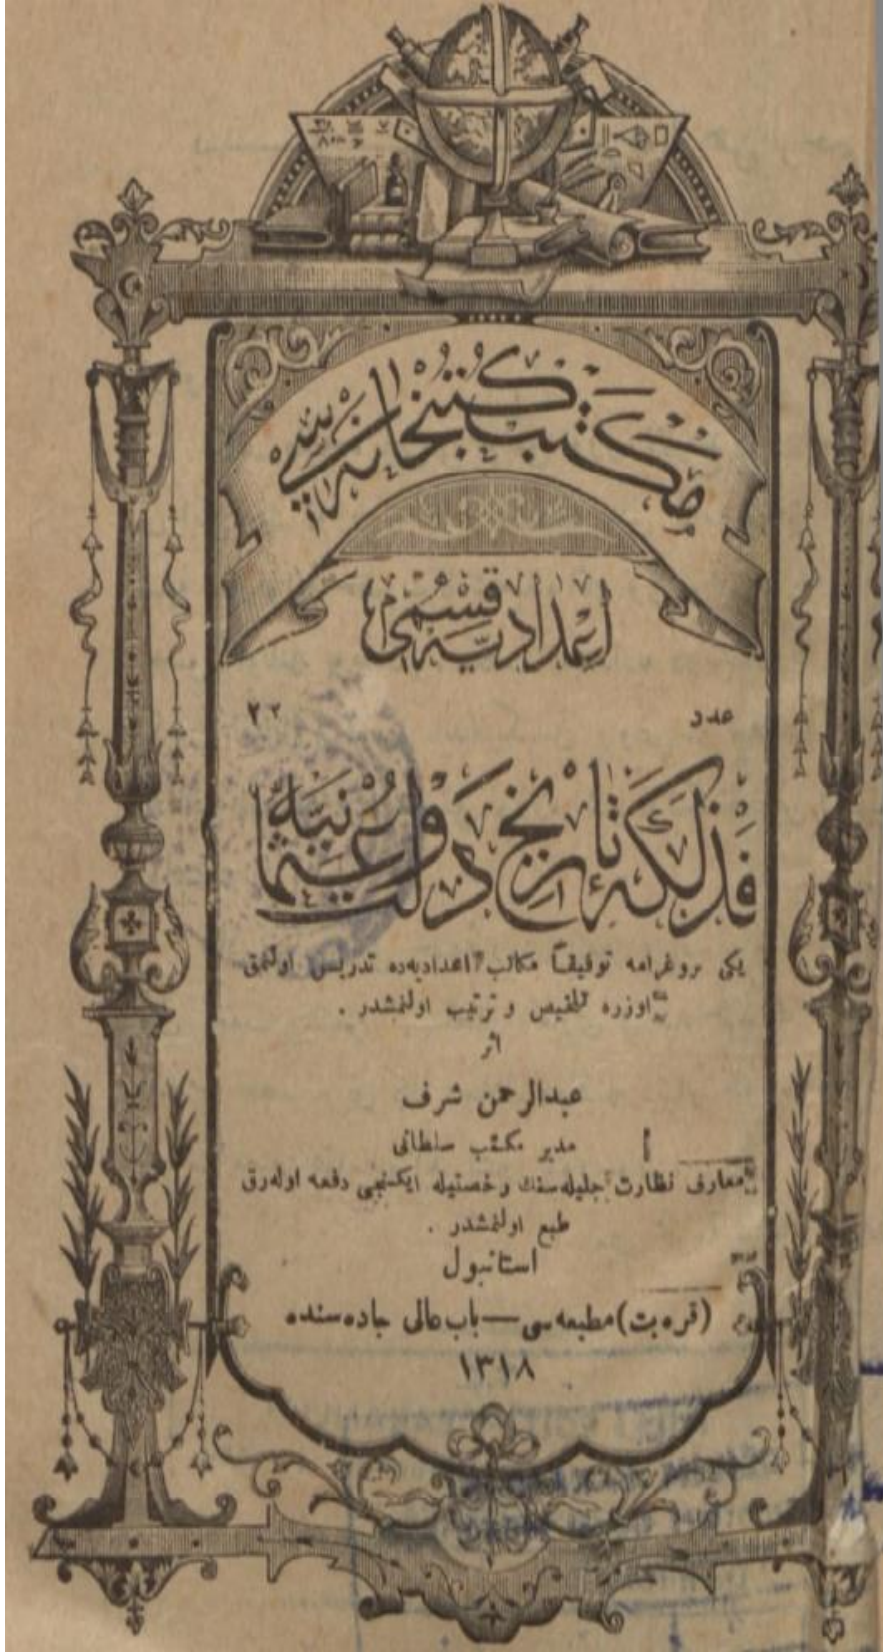 مكتب كتبخانه‌سى
اعداديه قسمى
عدد ٢٢
فذلكۀ تاريخ دولت عثمانيه
يكى پروغرامه توفيقاً مكاتب اعداديه‌ده تدريس اولنمق
اوزره تلخيص و ترتيب اولنمشدر .
اثر
عبدالرحمن شرف
مدير مكتب سلطانى
معارف نظارت جليله‌سنك رخصتيله ايكنجى دفعه اوله‌رق
طبع اولنمشدر .
استانبول
(قره بت) مطبعه‌سى — باب عالى جاده‌سنده
١٣١٨